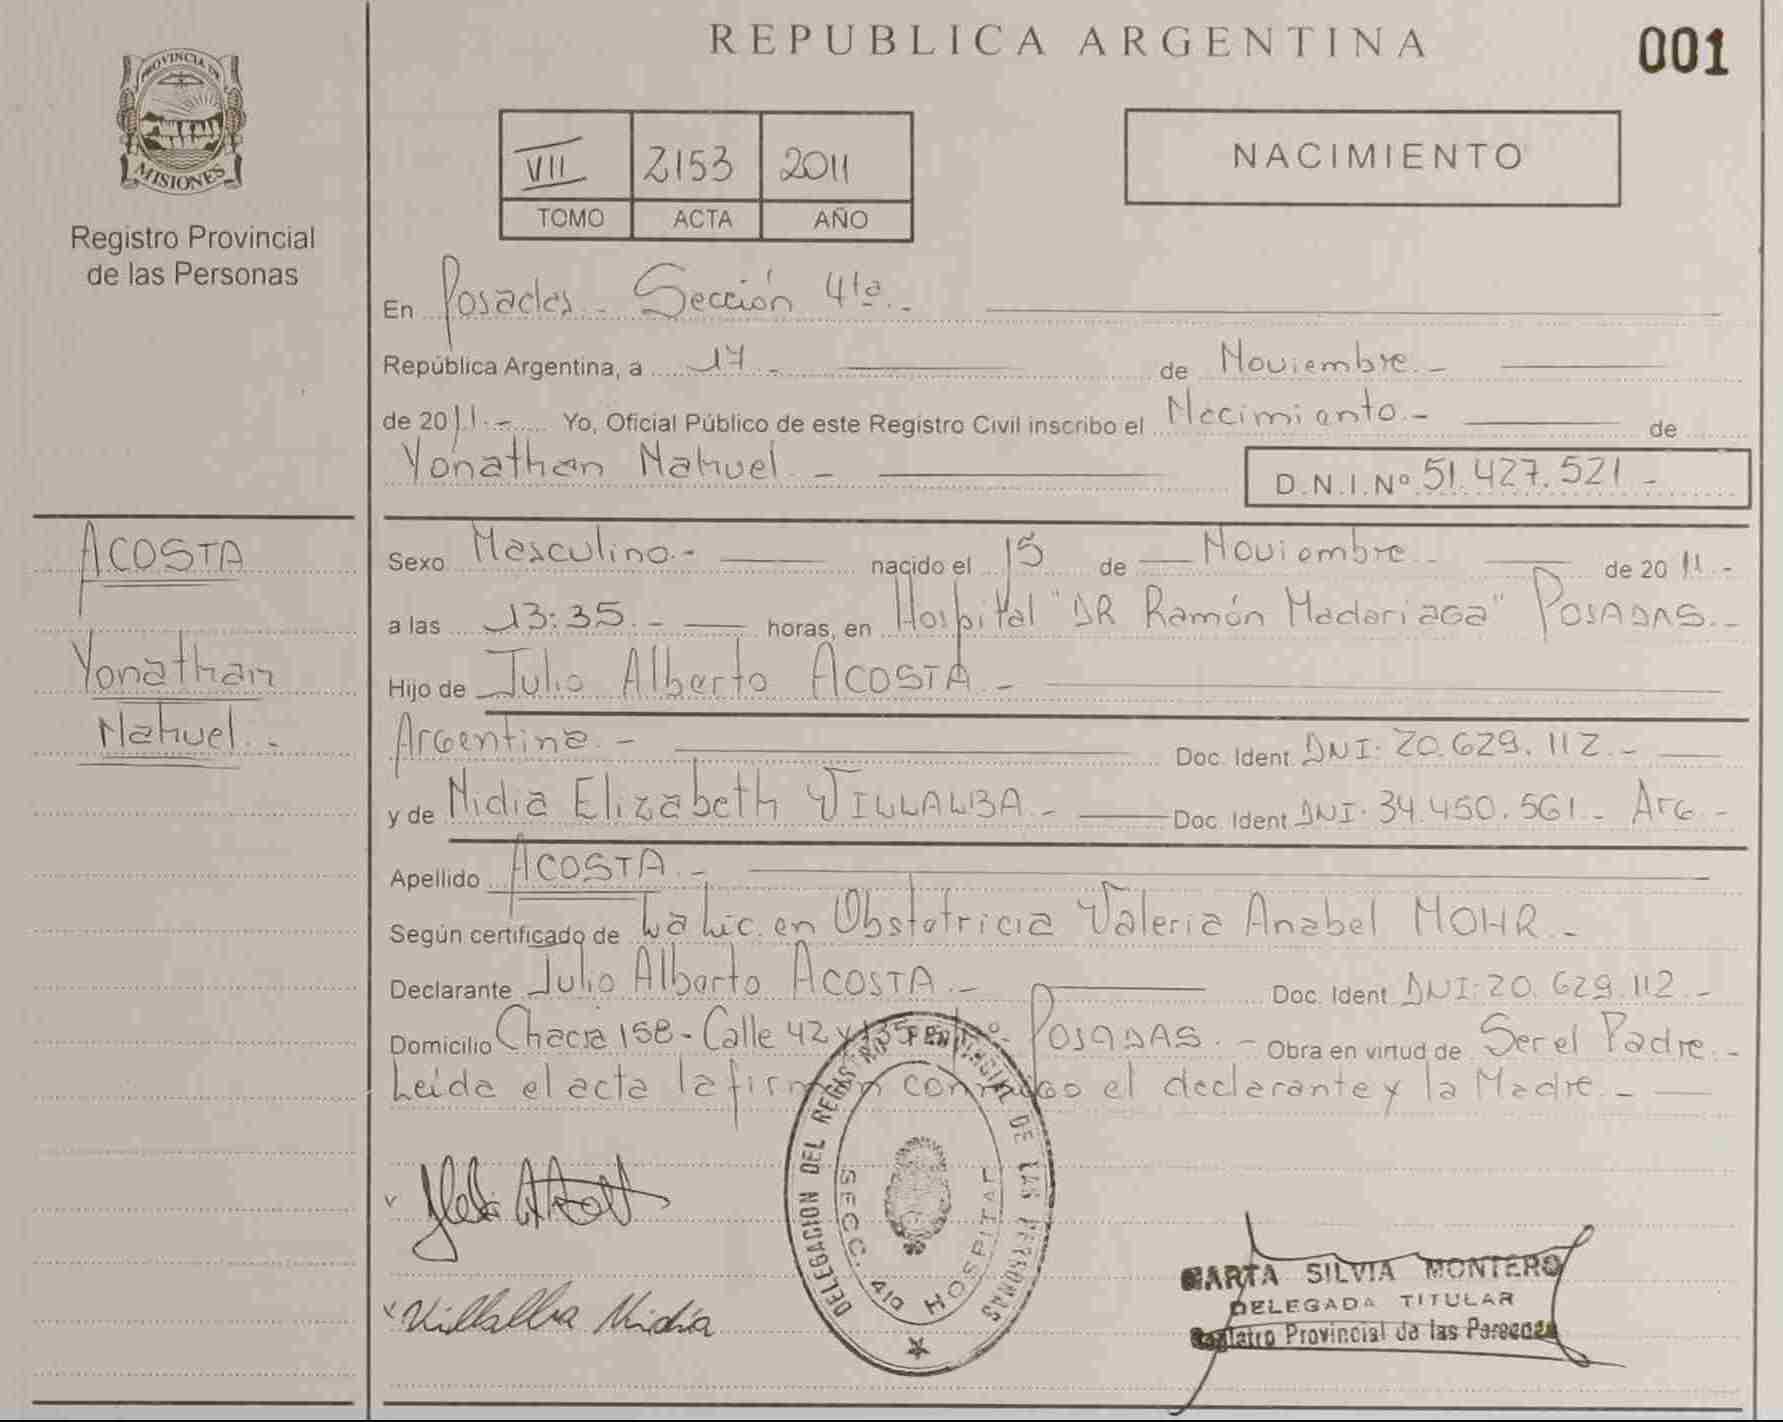 REPUBLICA ARGENTINA
001
PROVINCIA DE
MISIONES
Registro Provincial
de las Personas
VII 2153 2011
TOMO ACTA AÑO
NACIMIENTO
En Posadas - Sección 4ta.-
República Argentina, a 17 - de Noviembre.-
de 2011.- Yo, Oficial Público de este Registro Civil inscribo el Nacimiento.- de
Yonathan Nahuel - D.N.I.Nº 51.427.521 -
ACOSTA
Yonathan
Nahuel.-
Sexo Masculino.- nacido el 15 de Noviembre de 2011.-
a las 13:35.- horas, en Hospital "DR Ramón Madariaga" POSADAS.-
Hijo de Julio Alberto ACOSTA -
Argentina.- Doc. Ident. DNI: 20.629.112.-
y de Nidia Elizabeth VILLALBA - Doc. Ident DNI: 34.450.561 - Arg -
Apellido ACOSTA.-
Según certificado de La Lic. en Obstetricia Valeria Anabel MOHR -
Declarante Julio Alberto ACOSTA.- Doc. Ident DNI: 20.629.112.-
Domicilio Chacra 158 - Calle 42 y 135 POSADAS.- Obra en virtud de Ser el Padre.-
Leída el acta la firman conmigo el declarante y la Madre.-
DELEGACION DEL REGISTRO PROVINCIAL DE LAS PERSONAS
SECC. 4ta HOSPITAL
Villalba Nidia
MARTA SILVIA MONTERO
DELEGADA TITULAR
Registro Provincial de las Personas